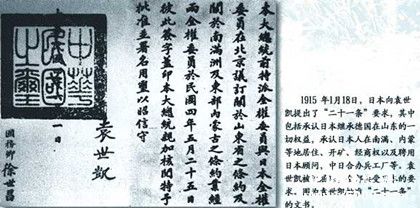 本大總統前特派全權委員與日本全權
委員在北京議訂關於山東省之條約及
關於南滿洲及東部內蒙古之條約業經
兩全權委員於民國四年五月二十五日
彼此簽字蓋印本大總統親加核閱特予
批准並署名用璽以昭信守
袁世凱
一日
國務卿徐世昌
中華民國之璽
1915 年1月18日，日本向袁世
凯提出了“二十一条”要求，其中
包括承认日本继承德国在山东的一
切权益，承认日本人在南满、内蒙
等地居住、开矿、经商权以及聘用
日本顾问、中日合办兵工厂等。袁世
凯被 的要
求。图为袁世凯 “二十一条”
的文书。